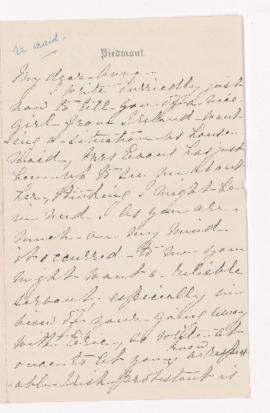 re maid.
Piedmont.
My dear Anna -
I write hurriedly just
now to tell you of a nice
girl from Ireland want-
ing a situation as house
maid, Mrs has just
been in to see me about
her, thinking I might be
in need. As you are
much on my mind
it occurred to me you
might want a reliable
servant, especially in
view of your going away
with Eric, so write at
once to let you know
able Irish Protestant is